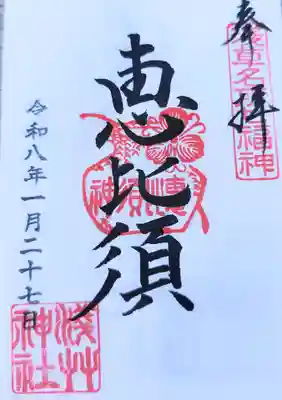 奉拝
浅草名所七福神
恵比須
令和八年一月二十七日
浅草神社